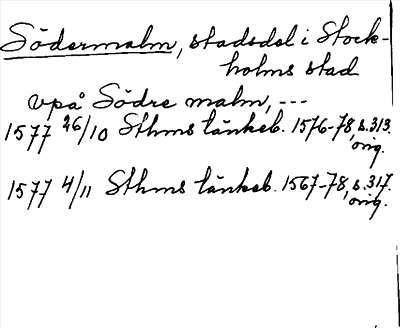 Södermalm, stadsdel i Stock-
holms stad
vpå Södre malm, ---
1577 26/10 Sthms tänkeb. 1576-78, s. 313.
orig.
1577 4/11 Sthms tänkeb. 1567-78, s. 317.
orig.